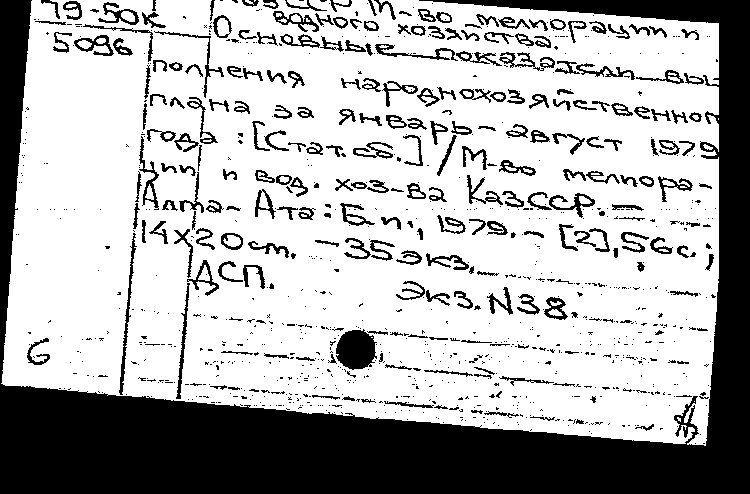 79-50к КазССР. М-во мелиорации и
водного хозяйства.
5096 Основные показатели вы-
полнения народнохозяйственного
плана за январь-август 1979
года : [Стат. сб.] / М-во мелиора-
ции и вод. хоз-ва КазССР. —
Алма-Ата : Б.и., 1979. – [2], 56с. ;
14х20см. – 35экз.
ДСП. Экз. N38.
6